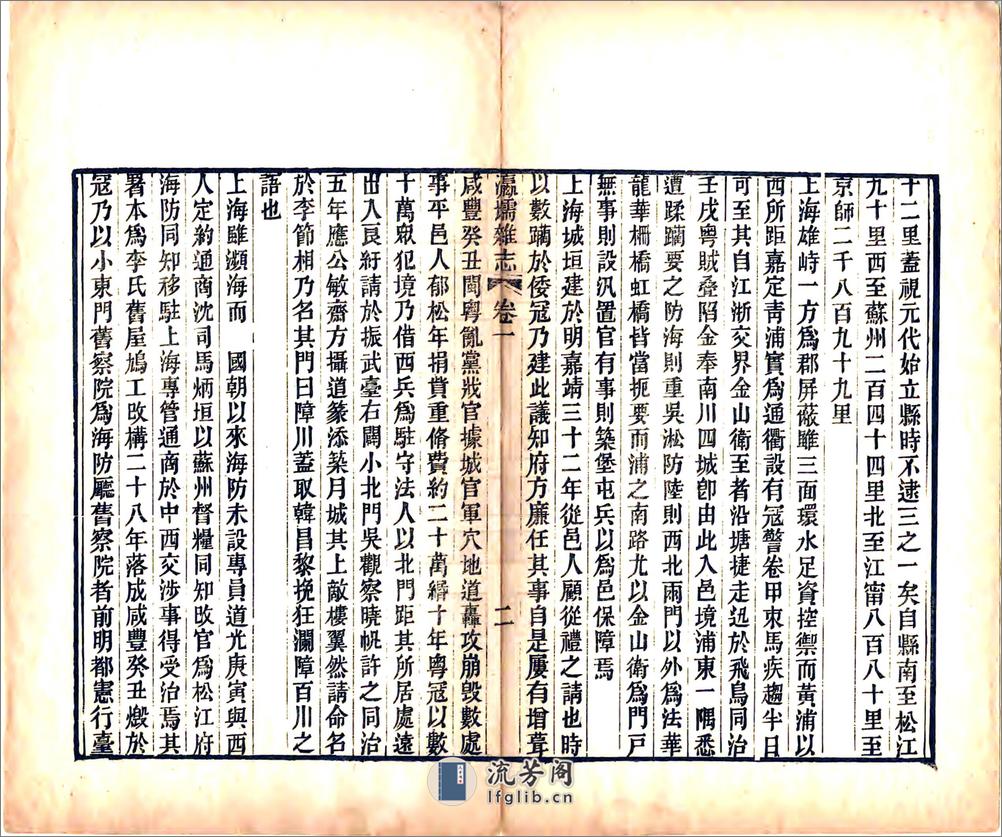 十二里蓋視元代始立縣時不逮三之一矣自縣南至松江
九十里西至蘇州二百四十四里北至江甯八百八十里至
京師二千八百九十九里
上海雄峙一方爲郡屏蔽雖三面環水足資控禦而黃浦以
西所距嘉定靑浦實爲通衢設有冦警卷甲束馬疾趨半日
可至其自江浙交界金山衛至者沿塘捷走迅於飛鳥同治
壬戌粵賊叠陷金奉南川四城卽由此入邑境浦東一隅悉
遭蹂躪要之防海則重吳淞防陸則西北兩門以外爲法華
龍華柵橋虹橋皆當扼要而浦之南路尤以金山衛爲門戸
無事則設汛置官有事則築堡屯兵以爲邑保障焉
上海城垣建於明嘉靖三十二年從邑人顧從禮之請也時
以數躪於倭冦乃建此議知府方廉任其事自是屢有增葺
瀛壖雜志 卷一 二
咸豐癸丑閩粵亂黨戕官據城官軍穴地道轟攻崩毀數處
事平邑人郁松年捐貲重脩費約二十萬緡十年粵冦以數
十萬衆犯境乃借西兵爲駐守法人以北門距其所居處遠
出入艮紆請於振武臺右闢小北門吳觀察曉帆許之同治
五年應公敏齋方攝道篆添築月城其上敵樓翼然請命名
於李節相乃名其門曰障川蓋取韓昌黎挽狂瀾障百川之
語也
上海雖瀕海而 國朝以來海防未設專員道光庚寅與西
人定約通商沈司馬炳垣以蘇州督糧同知改官爲松江府
海防同知移駐上海專管通商於中西交涉事得受治焉其
署本爲李氏舊屋鳩工改構二十八年落成咸豐癸丑燬於
冦乃以小東門舊察院爲海防廳舊察院者前明都憲行臺
流芳阁
lfglib.cn